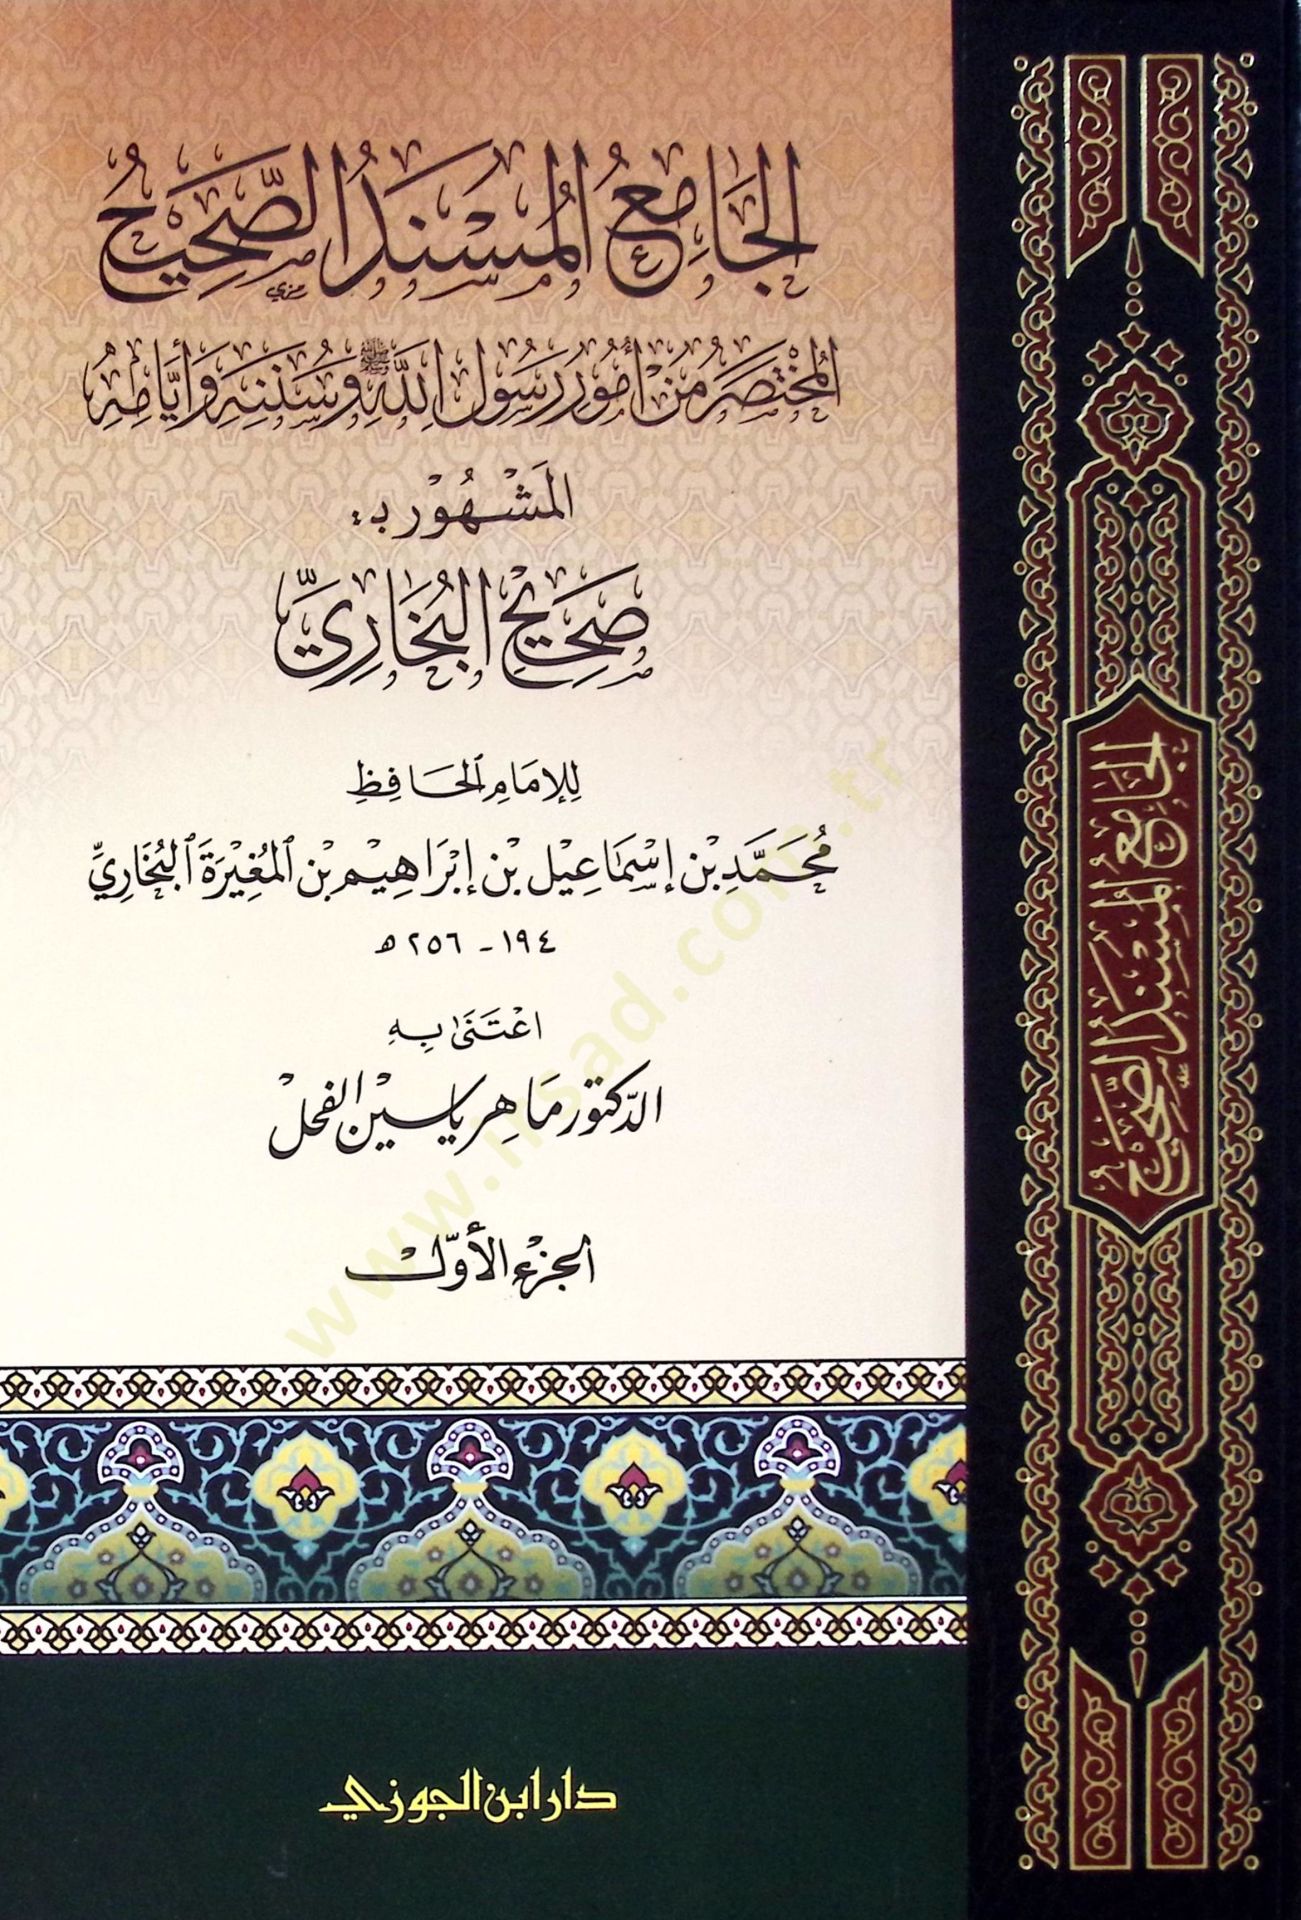 الجَامِعُ المُسْنَدُ الصَّحِيحُ
المُخْتَصَرُ مِنْ أُمُورِ رَسُولِ اللَّهِ ﷺ وَسُنَنِهِ وَأَيَّامِهِ
المَشْهُورُ بـ:
صَحِيحُ البُخَارِيِّ
لِلإِمَامِ الحَافِظِ
مُحَمَّدِ بْنِ إِسْمَاعِيلَ بْنِ إِبْرَاهِيمَ بْنِ المُغِيرَةِ البُخَارِيِّ
١٩٤ - ٢٥٦ هـ
اعْتَنَىٰ بِهِ
الدكتور ماهر ياسين الفحل
الجزء الأوّل
دار ابن الجوزي
الجَامِعُ المُسْنَدُ الصَّحِيحُ
www.nsad.com.tr